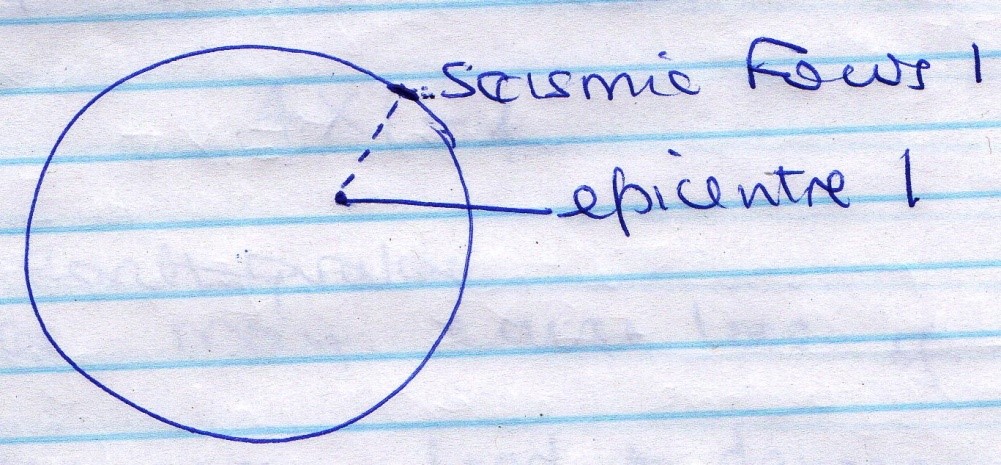 Seismic Focus 1
epicentre 1